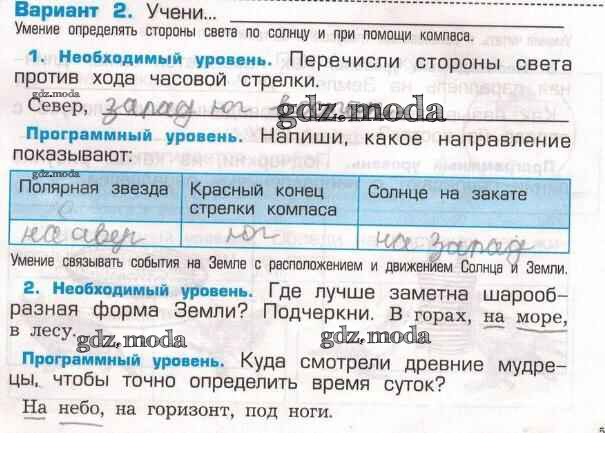 Вариант 2. Учени...
Умение определять стороны света по солнцу и при помощи компаса.
1. Необходимый уровень. Перечисли стороны света
против хода часовой стрелки.
gdz.moda
Север, запад юг
gdz.moda
Программный уровень. Напиши, какое направление
показывают:
gdz.moda
Полярная звезда Красный конец стрелки компаса Солнце на закате
на север юг на запад
Умение связывать события на Земле с расположением и движением Солнца и Земли.
2. Необходимый уровень. Где лучше заметна шарооб-
разная форма Земли? Подчеркни. В горах, на море,
в лесу.
gdz.moda
gdz.moda
Программный уровень. Куда смотрели древние мудре-
цы, чтобы точно определить время суток?
На небо, на горизонт, под ноги.
5